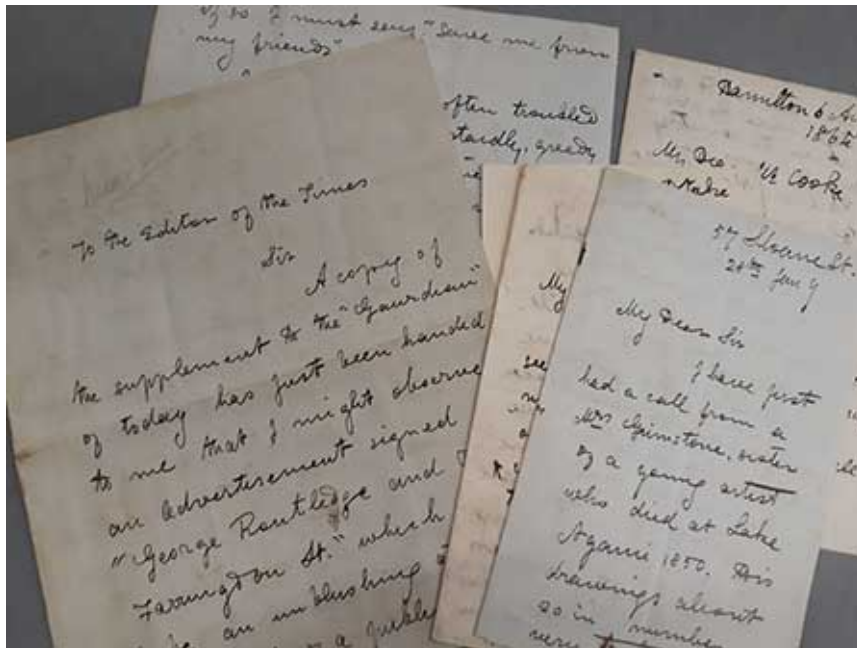 of so I must sing "Save me from
my friends"
often troubled
tardly, greedy
To the Editor of the Times
Sir
A copy of
the supplement to the "Gaurdian"
of today has just been handed
to me that I might observe
an advertisement signed
"George Routledge and
Farringdon St." which
an unblushing
a public
Hamilton 6
1862
My Dea
Cooke
57 Sloane St.
20th Jany
My Dear Sir
I have just
had a call from a
Mrs Grimstone, sister
of a young artist
who died at Lake
Ngami 1850. His
drawings about
20 in number
very
My
see